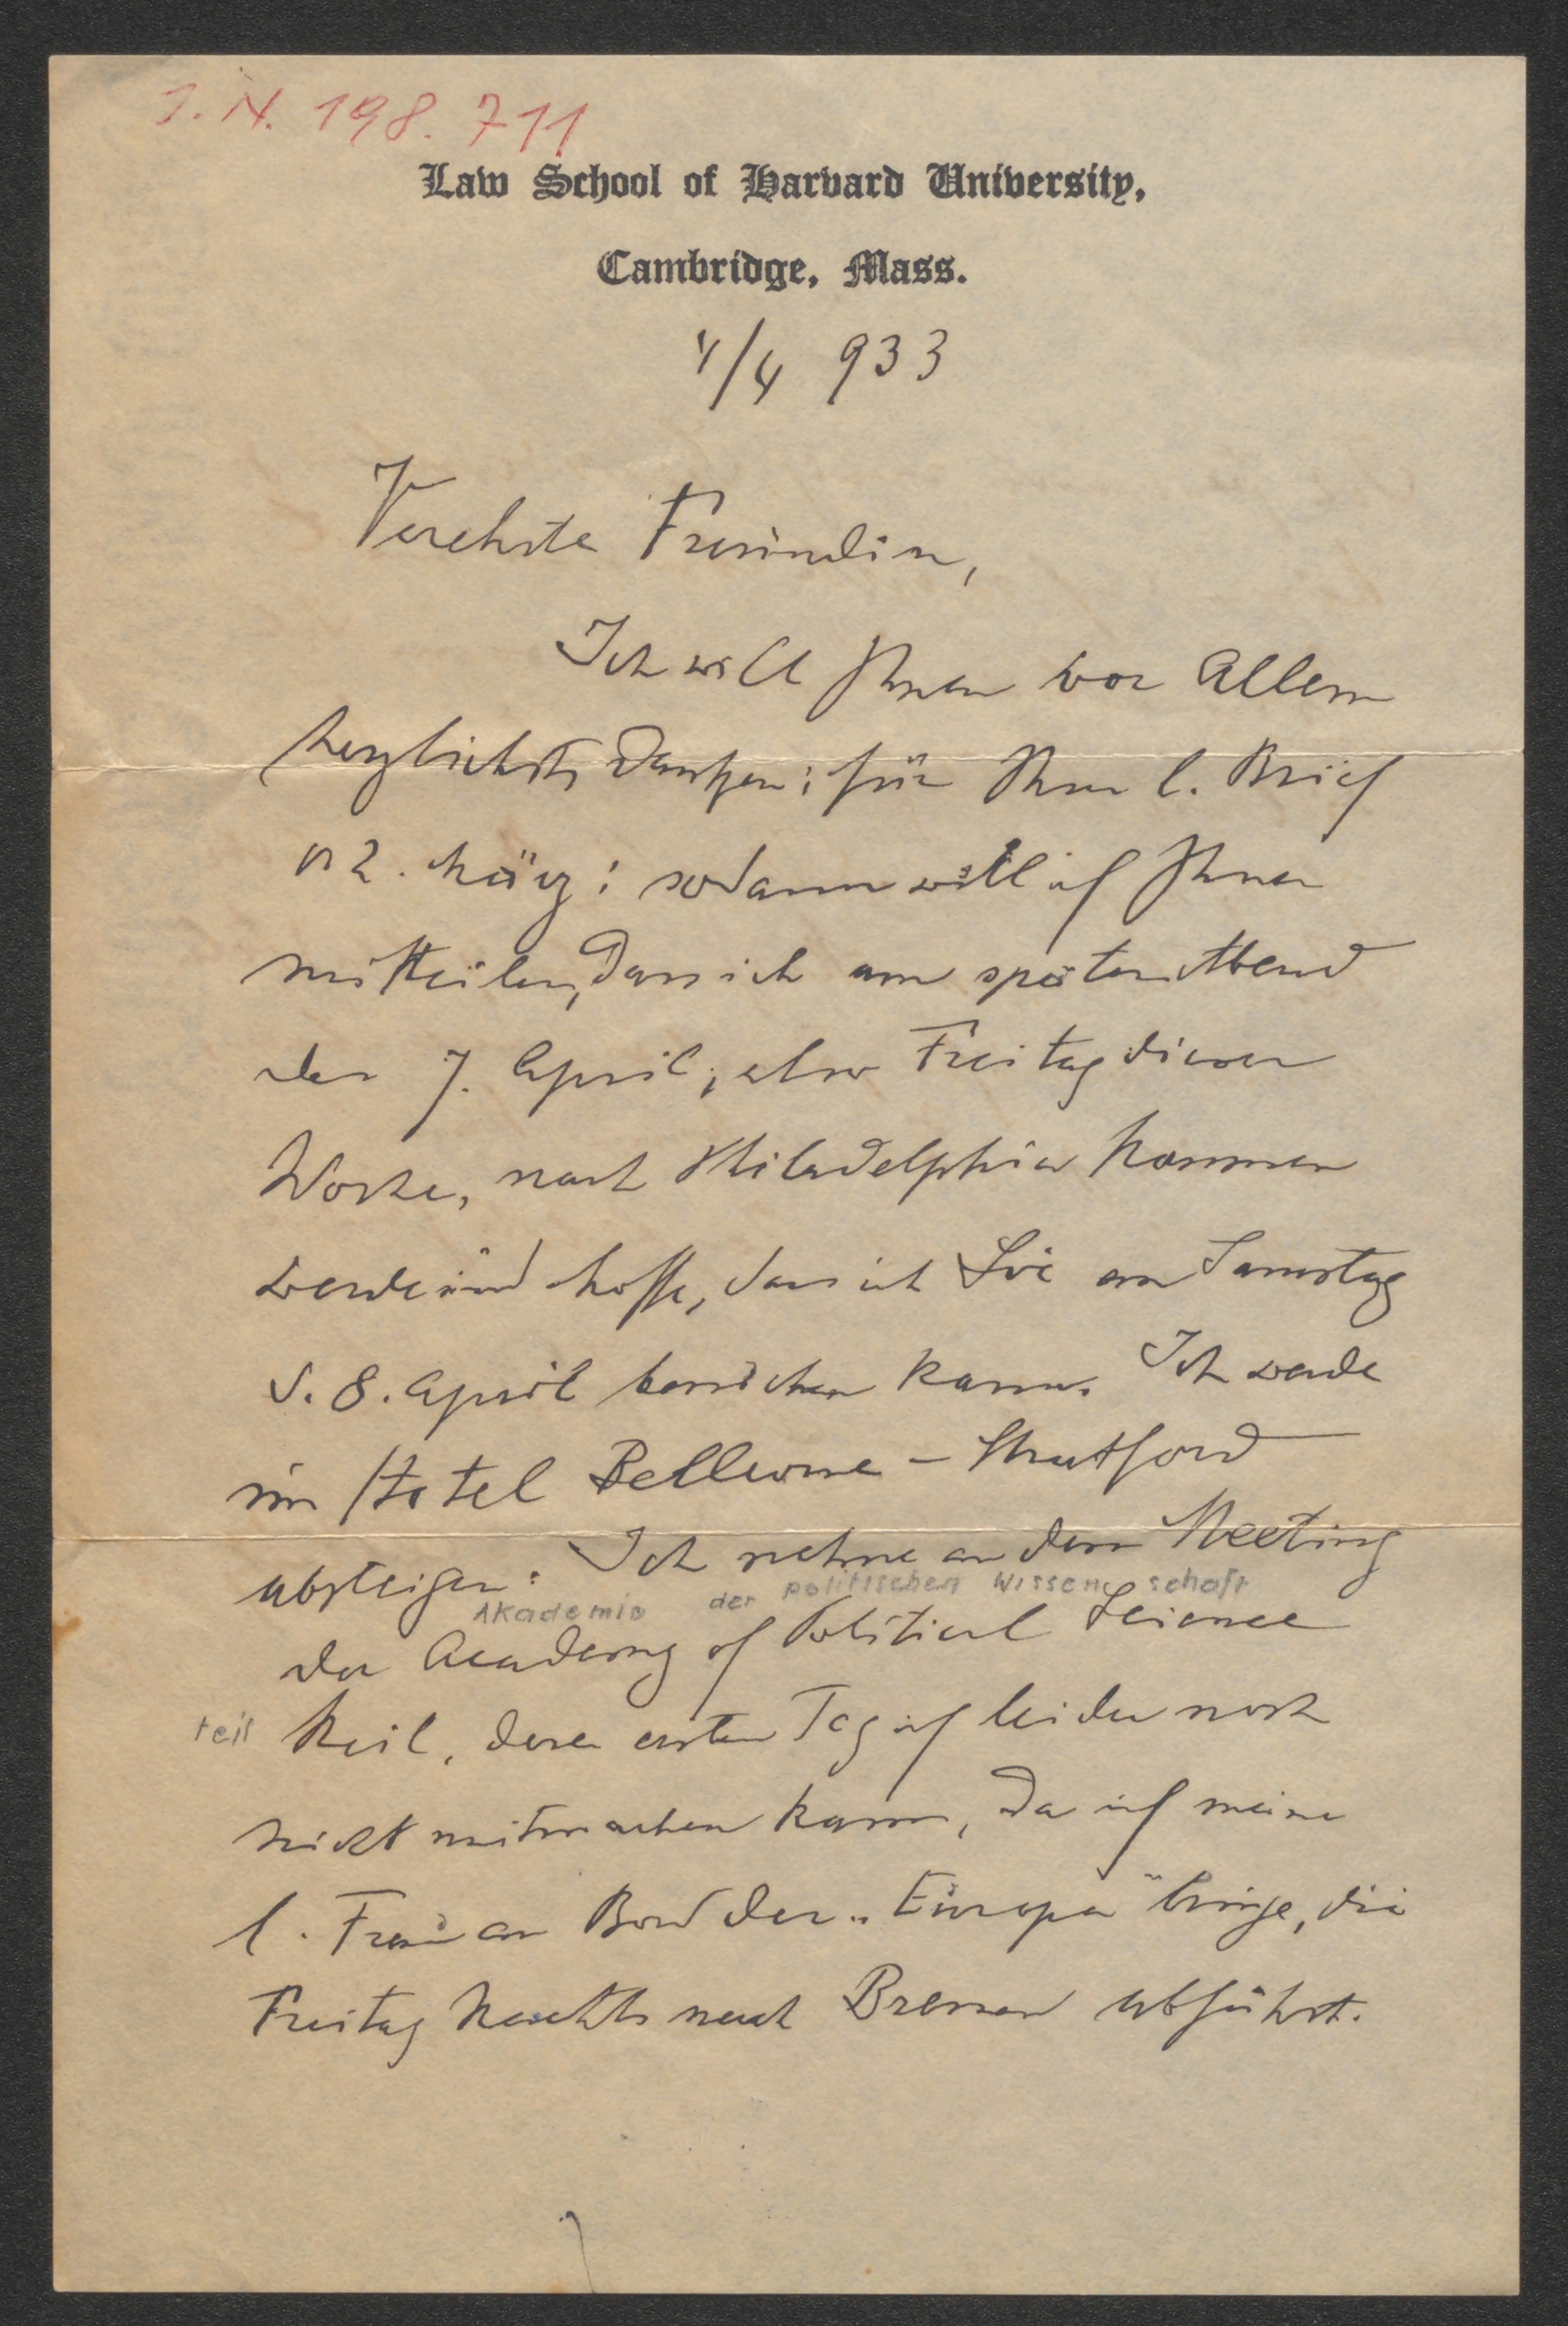 I. N. 198.711
Law School of Harvard University,
Cambridge, Mass.
4/4 933
Verehrte Freundin,
Ich will Ihnen vor Allem
herzlichst danken für Ihren l. Brief
2. März; sodann will ich Ihnen
mitteilen, dass ich am späten Abend
des 7. April, also Freitag dieser
Woche, nach Philadelphia kommen
werde und hoffe, dass ich Sie am Samstag
d. 8. April besuchen kann. Ich werde
im Hotel Bellevue-Stratford
absteigen. Ich nehme an dem Meeting
Akademie der politischen Wissenschaft
der Academy of Political Science
teil
theil, deren ersten Tag ich leider noch
nicht mitmachen kann, da ich meine
l. Frau an Bord der „Europa" bringe, die
Freitag Nachts nach Bremen abfährt.